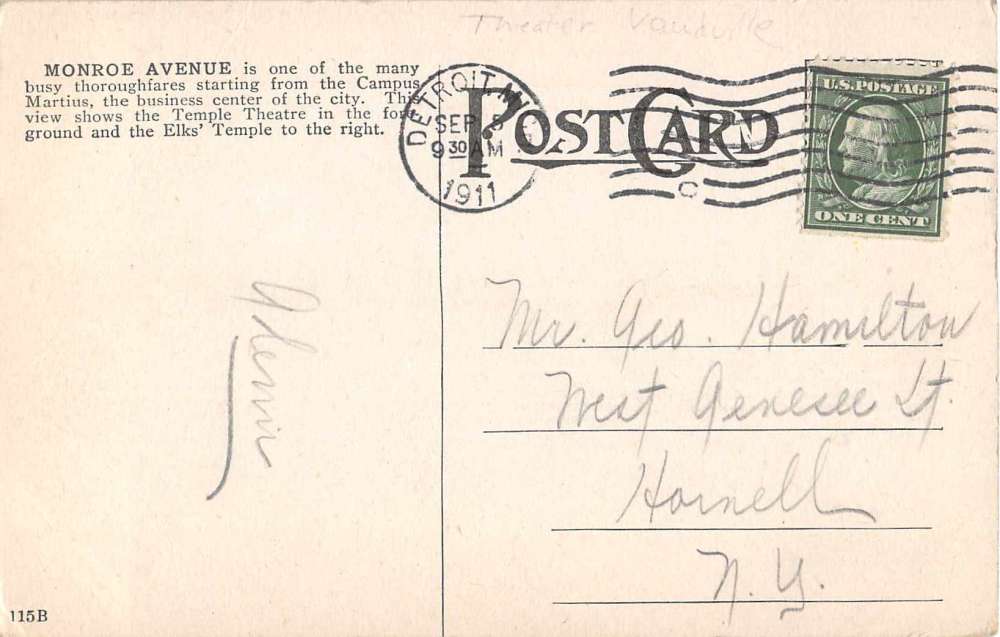 Theater Vaudville
MONROE AVENUE is one of the many
busy thoroughfares starting from the Campus
Martius, the business center of the city. This
view shows the Temple Theatre in the fore-
ground and the Elks' Temple to the right.
DETROIT, MICH
SEP 5
9 30 AM
1911
POST CARD
C
U.S. POSTAGE
ONE CENT
Mr. Geo. Hamilton
West Genesee St.
Hornell
N.Y.
115B